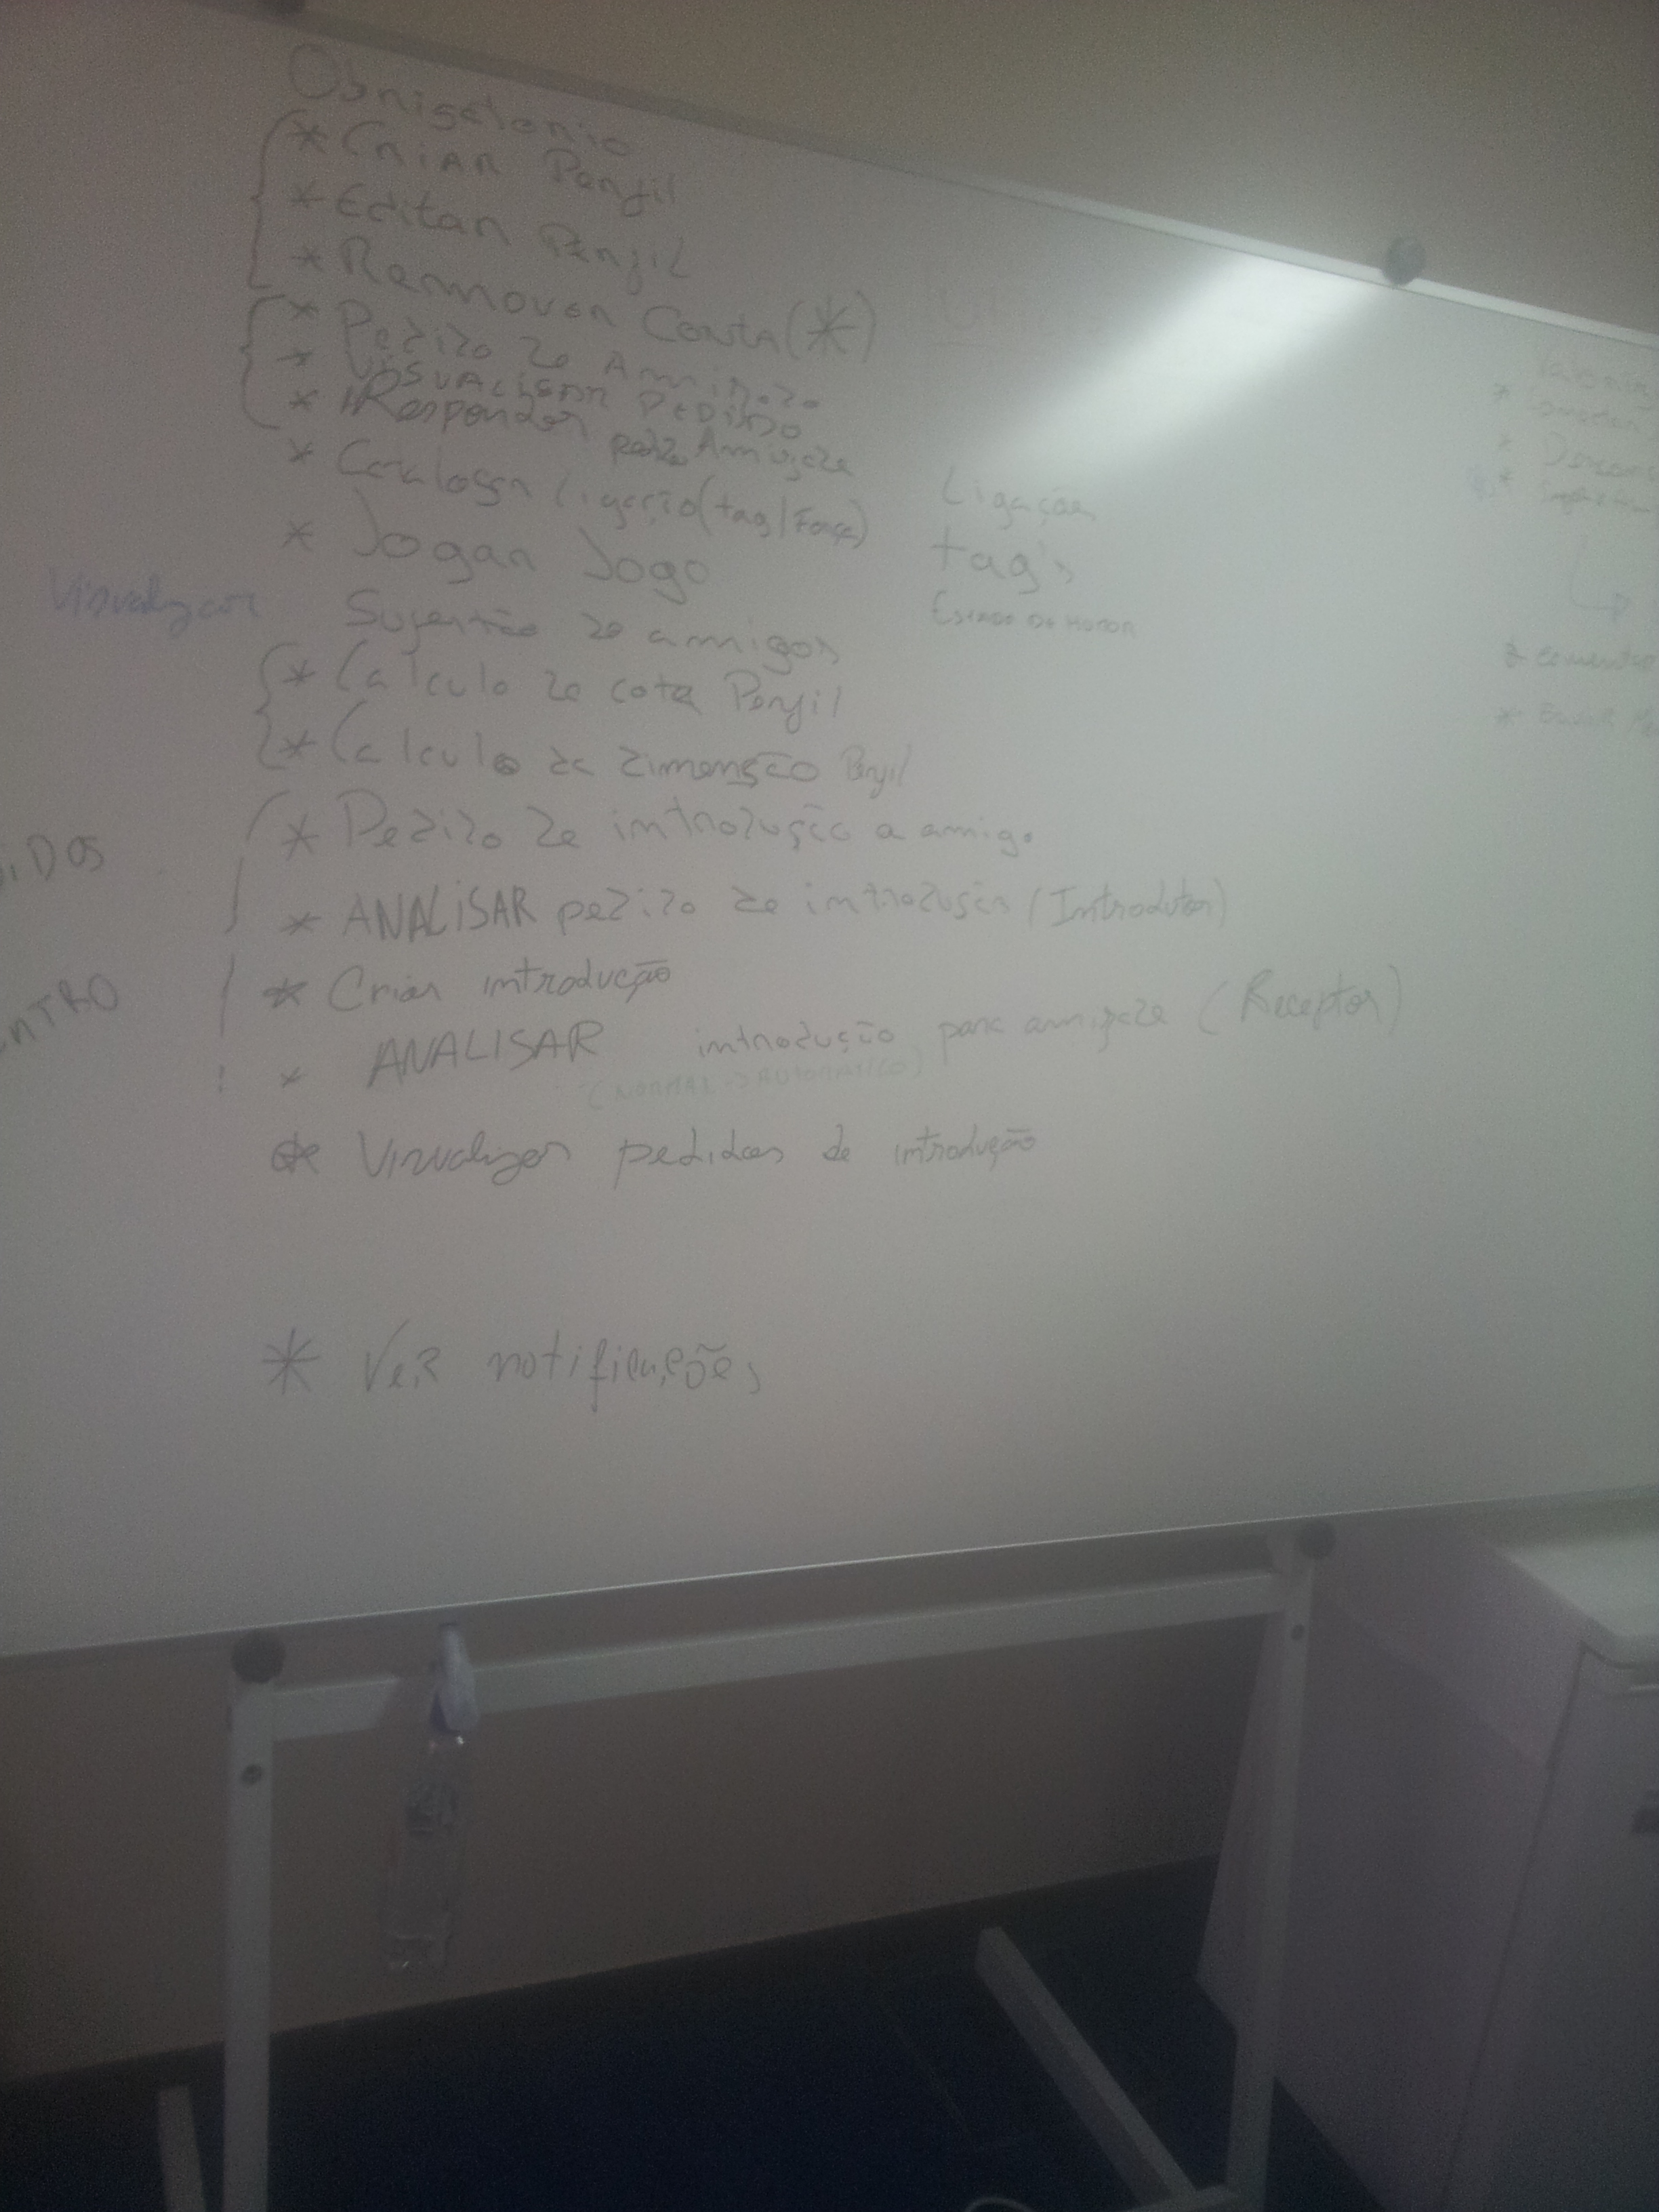 Obrigatorio
* CRIAR Perfil
* Editar Perfil
* Remover Conta (*)
* Pedido de Amizade
* VISUALISAR PEDIDO
* Responder pedido Amizade
* Catalogar ligação (tag/Força)
* Jogar Jogo
Visualizar Sugestão de amigos
* Calculo de cota Perfil
* Calculo de dimensão Perfil
* Pedido de introdução a amigo
* ANALISAR pedido de introdução (Introdutor)
* Criar introdução
* ANALISAR introdução para amizade (Receptor)
(NORMAL -> AUTOMATICO)
* Visualizar pedidos de introdução
* VER notificações
Ligações
tag's
ESTADO DE HUMOR